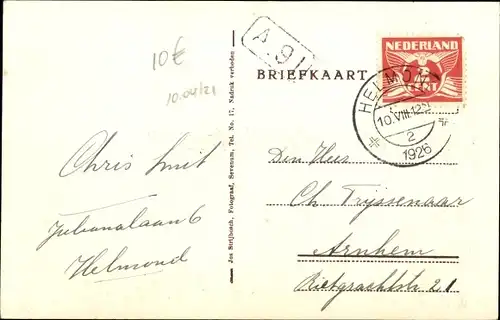 10€
10.04/21
A.91
NEDERLAND
CENT
BRIEFKAART
HELMOND
10.VIII.12
2
1926
Jos Strijbosch, Fotograaf, Sevenum, Tel. No. 17. Nadruk verboden
Chris Smit
Julianalaan 6
Helmond
Den Heer
Ch. Trijssenaar
Arnhem
Rietgrachtstr 21